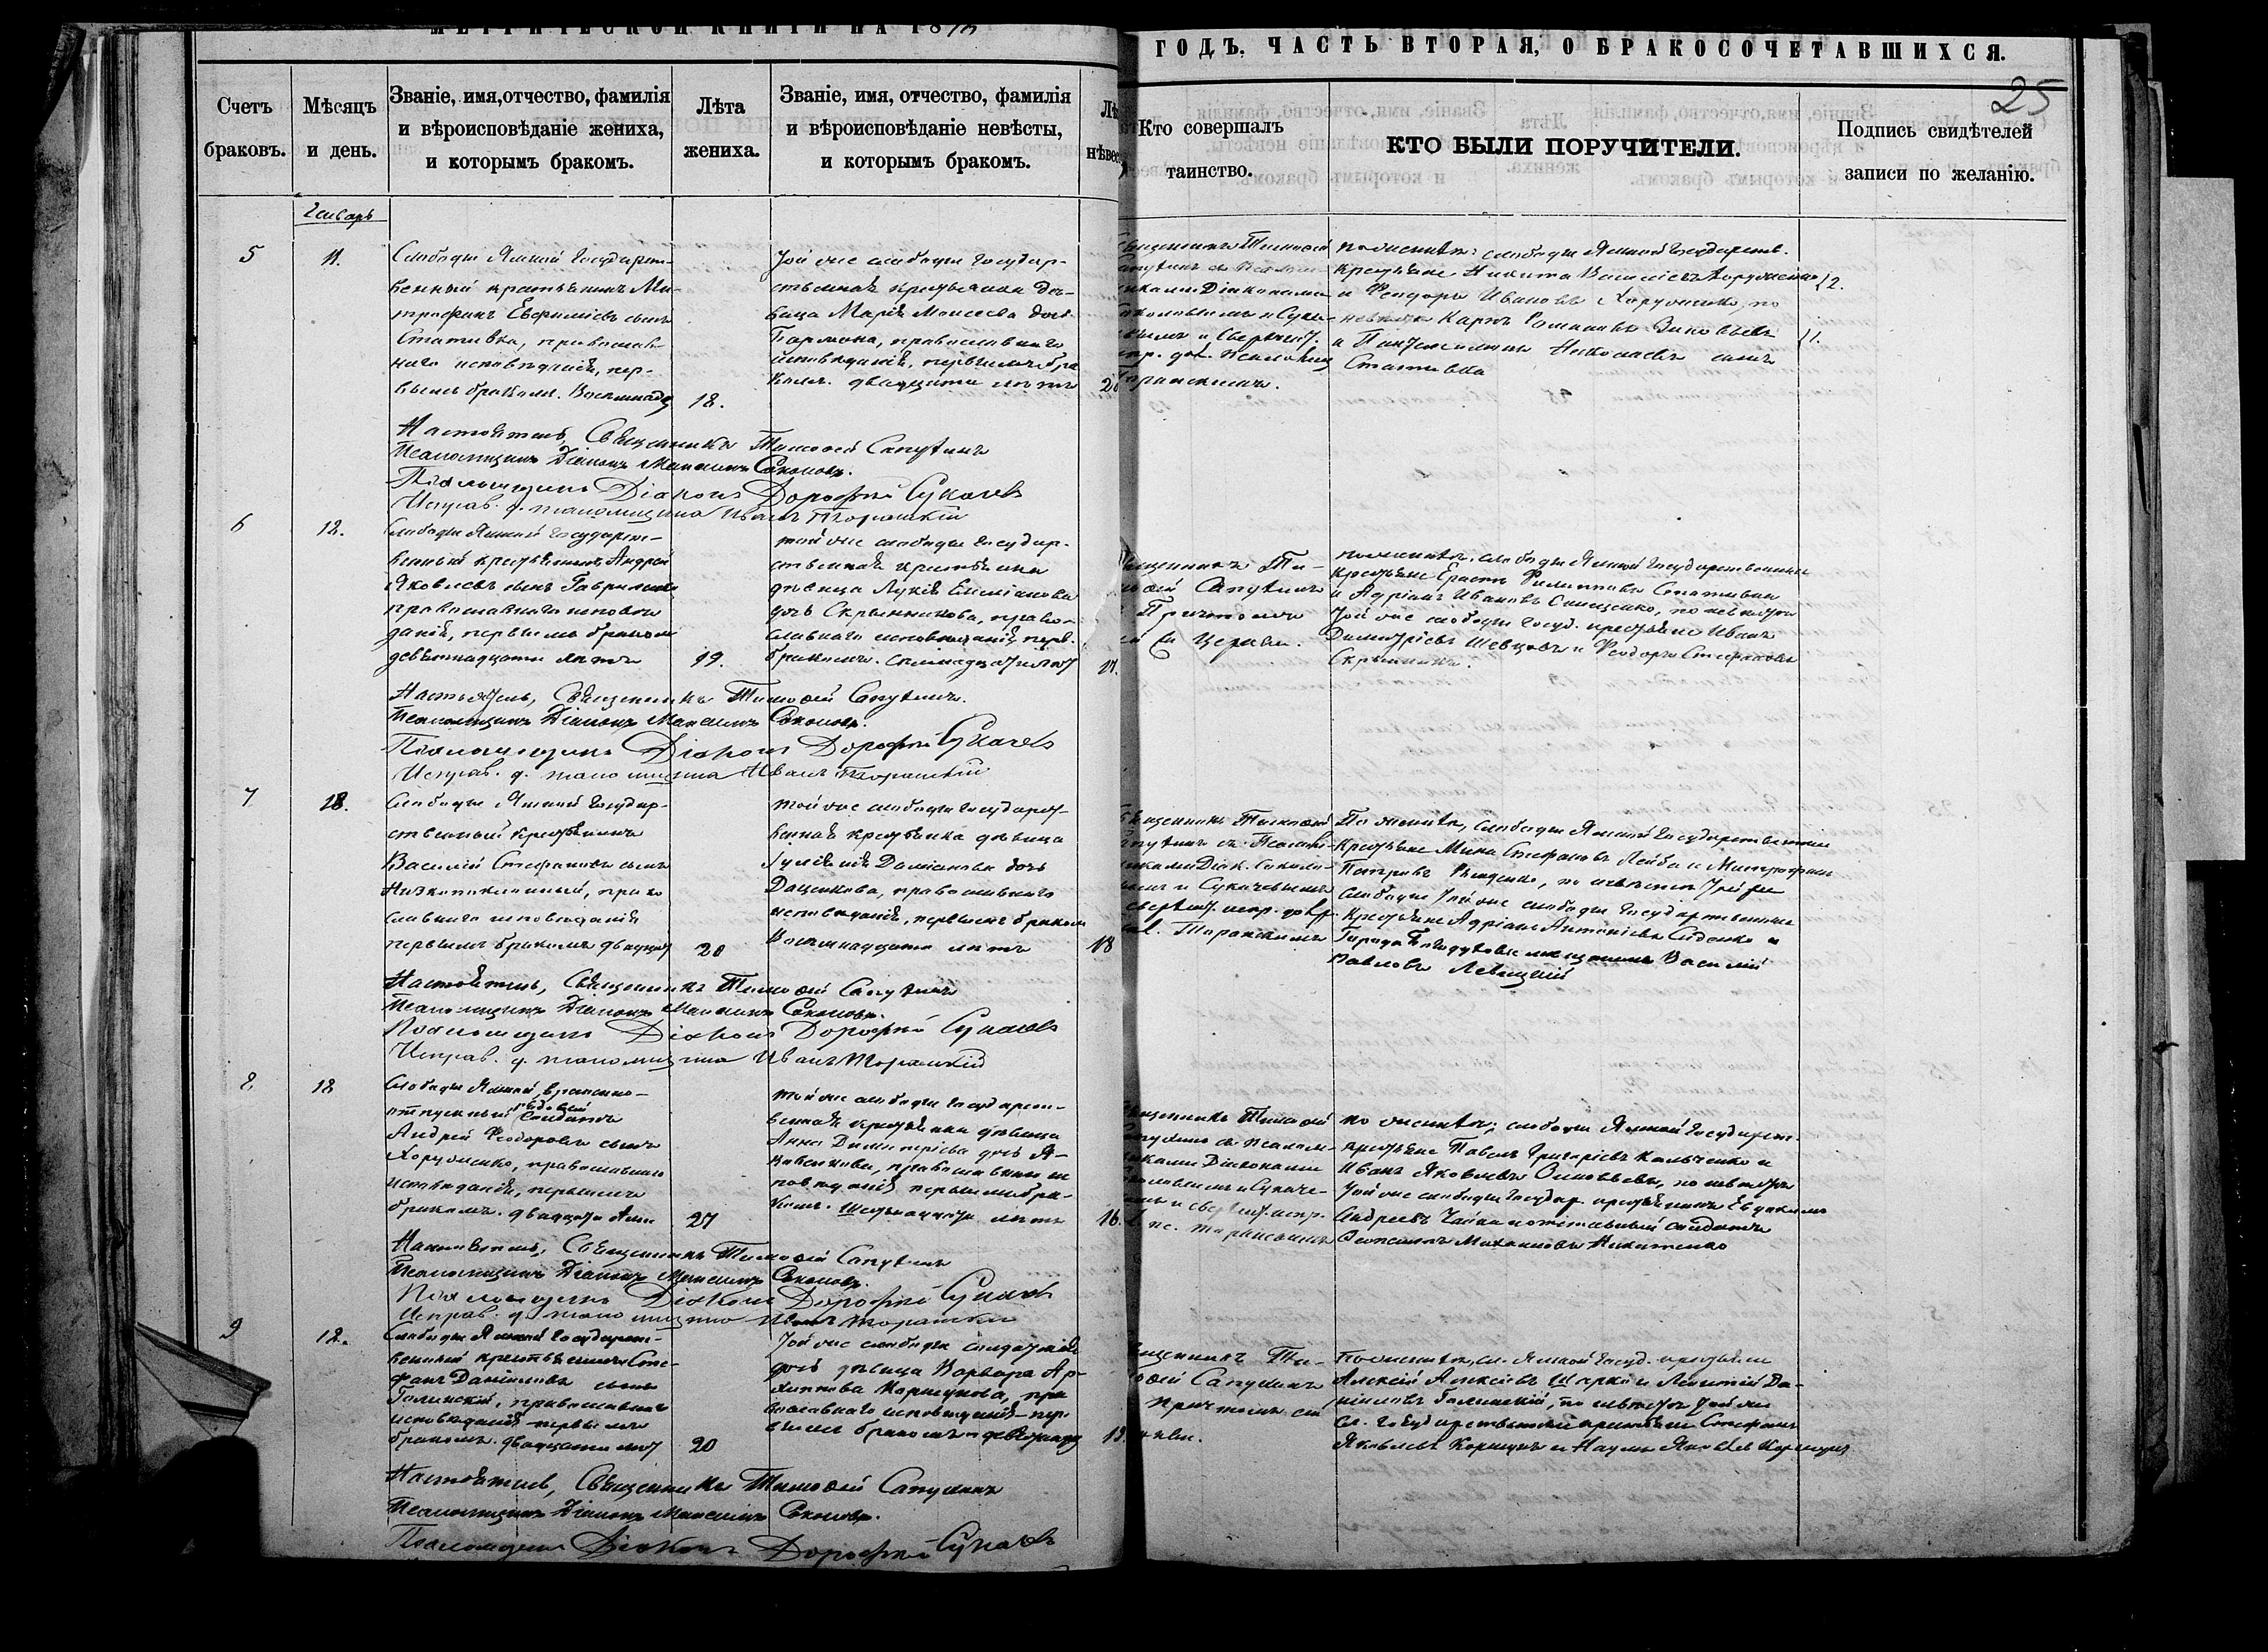 МЕТРИЧЕСКОЙ КНИГИ НА 187
ГОДЪ. ЧАСТЬ ВТОРАЯ, О БРАКОСОЧЕТАВШИХСЯ.
25
Счетъ браковъ.
Мѣсяцъ и день.
Званіе, имя, отчество, фамилія
и вѣроисповѣданіе жениха,
и которымъ бракомъ.
Лѣта
жениха.
Званіе, имя, отчество, фамилія
и вѣроисповѣданіе невѣсты,
и которымъ бракомъ.
Лѣ
нѣвес
Кто совершалъ
таинство.
КТО БЫЛИ ПОРУЧИТЕЛИ.
Подпись свидѣтелей
записи по желанію.
Январь
5
11.
Слободы Ямной Государст-
венный крестьянинъ Ми-
трофанъ Евфиміевъ сынъ
Стативка, православ-
наго исповѣданія, пер-
вымъ бракомъ. Восемнадц
18.
Той же слободы Государ-
ственная крестьянка дѣ-
вица Марія Моисеева доч
православнаго
исповѣданія, первымъ бра
комъ. двадцати лѣтъ
20
Священникъ Тимофей
Діаконами
и Сука-
по женихѣ: слободы Ямной Государств.
крестьяне Никита Василіевъ Хоруженко
и Феодоръ Ивановъ Хоруженко, по
невѣстѣ Карпъ Романовъ Зиновьевъ
и Пантелеимонъ Николаевъ сынъ
Стативка
Настоятель, Священникъ Тимофей Сапухинъ
Псаломщикъ Діаконъ Максимъ Соколовъ.
Псаломщикъ Діаконъ Дорофей Сукачевъ
Исправ. д. псаломщика Иванъ Торанскій
6
12.
Слободы Ямной Государст-
венный крестьянинъ Андрей
Яковлевъ сынъ Гавриленко
православнаго исповѣ
данія, первымъ бракомъ
девятнадцати лѣтъ
19.
той же слободы Государ-
ственная крестьянка
дѣвица Лукія Емиліанова
дочь Скрынникова, право-
славнаго исповѣданія, перв.
бракомъ. семнадцати лѣт
17.
Священникъ Ти-
мофей Сапухинъ
Причтомъ
Церкви.
по женихѣ, слободы Ямной Государственные
крестьяне Ерастъ Филипповъ Стативка
и Адріанъ Ивановъ Онищенко, по невѣстѣ
той же слободы Госуд. крестьяне Иванъ
Димитріевъ Шевцовъ и Феодоръ Стефановъ
Скрынникъ.
Настоятель, Священникъ Тимофей Сапухинъ.
Псаломщикъ Діаконъ Максимъ Соколовъ.
Псаломщикъ Діаконъ Дорофей Сукачевъ
Исправ. д. псаломщика Иванъ Торанскій
7
18.
Слободы Ямной Государ-
ственный крестьянинъ
Василій Стефановъ сынъ
Низкопоклонный, право
славнаго исповѣданія
первымъ бракомъ двадцат
20
той же слободы Государст-
венная крестьянка дѣвица
Іуліанія Даміанова дочь
Даценкова, православнаго
исповѣданія, первымъ бракомъ
Восемнадцати лѣтъ
18
Священникъ Тимофей
Сапухинъ съ Псалом-
щиками Діак. Соколо-
вымъ и Сукачевымъ
Торанскимъ
По женихѣ, слободы Ямной Государственные
крестьяне Мина Стефановъ Лейба и Митрофанъ
Петровъ по невѣстѣ той же
слободы Государственные
крестьяне Адріанъ Антоніевъ Сиденко и
Города Богодухова мѣщанинъ Василій
Павловъ Левицкій
Настоятель, Священникъ Тимофей Сапухинъ
Псаломщикъ Діаконъ Максимъ Соколовъ.
Псаломщикъ Діаконъ Дорофей Сукачевъ
Исправ. д. псаломщика Иванъ Торанскій
8
18
Слободы Ямной, временно-
отпускный рядовый солдатъ
Андрей Феодоровъ сынъ
Хоруженко, православнаго
исповѣданія, первымъ
бракомъ.
27
той же слободы Государст-
венная крестьянка дѣвица
Анна Димитріева дочь Я-
ковенкова, православнаго ис
повѣданія первымъ бра-
комъ. Шестнадцати лѣтъ
16.
Священникъ Тимофей
Сапухинъ съ Псалом-
щиками Діаконами
Соколовымъ и Сукаче-
Торанскимъ
по женихѣ, слободы Ямной Государст.
крестьяне Павелъ Григоріевъ Кальченко и
Иванъ Яковлевъ Зиновьевъ, по невѣстѣ
той же слободы Государ. крестьянинъ Евдокимъ
Андреевъ Чайка и отставный солдатъ
Михаиловъ Никитенко
Настоятель, Священникъ Тимофей Сапухинъ
Псаломщикъ Діаконъ Максимъ Соколовъ.
Псаломщикъ Діаконъ Дорофей Сукачевъ
Исправ. д. псаломщика Иванъ Торанскій
9
18.
Слободы Ямной Государст-
венный крестьянинъ Сте-
фанъ Даніиловъ сынъ
Галинскій, православнаго
исповѣданія первымъ
бракомъ. двадцати лѣт
20
Той же слободы солдатская
дочь дѣвица Варвара Ар-
хиппова Коршукова, пра
вославнаго исповѣданія пер-
вымъ бракомъ девятнадц
19.
Священникъ Ти-
мофей Сапухинъ
причтомъ
По женихѣ, сл. Ямной Госуд. крестьяне
Алексій Алексіевъ Шарко и Леонтій Да-
ніиловъ Галинскій, по невѣстѣ той же
сл. Государственные крестьяне Стефанъ
Яковлевъ Коршунъ и Наумъ Яковлевъ Коршунъ
Настоятель, Священникъ Тимофей Сапухинъ
Псаломщикъ Діаконъ Максимъ Соколовъ.
Псаломщикъ Діаконъ Дорофей Сукачевъ